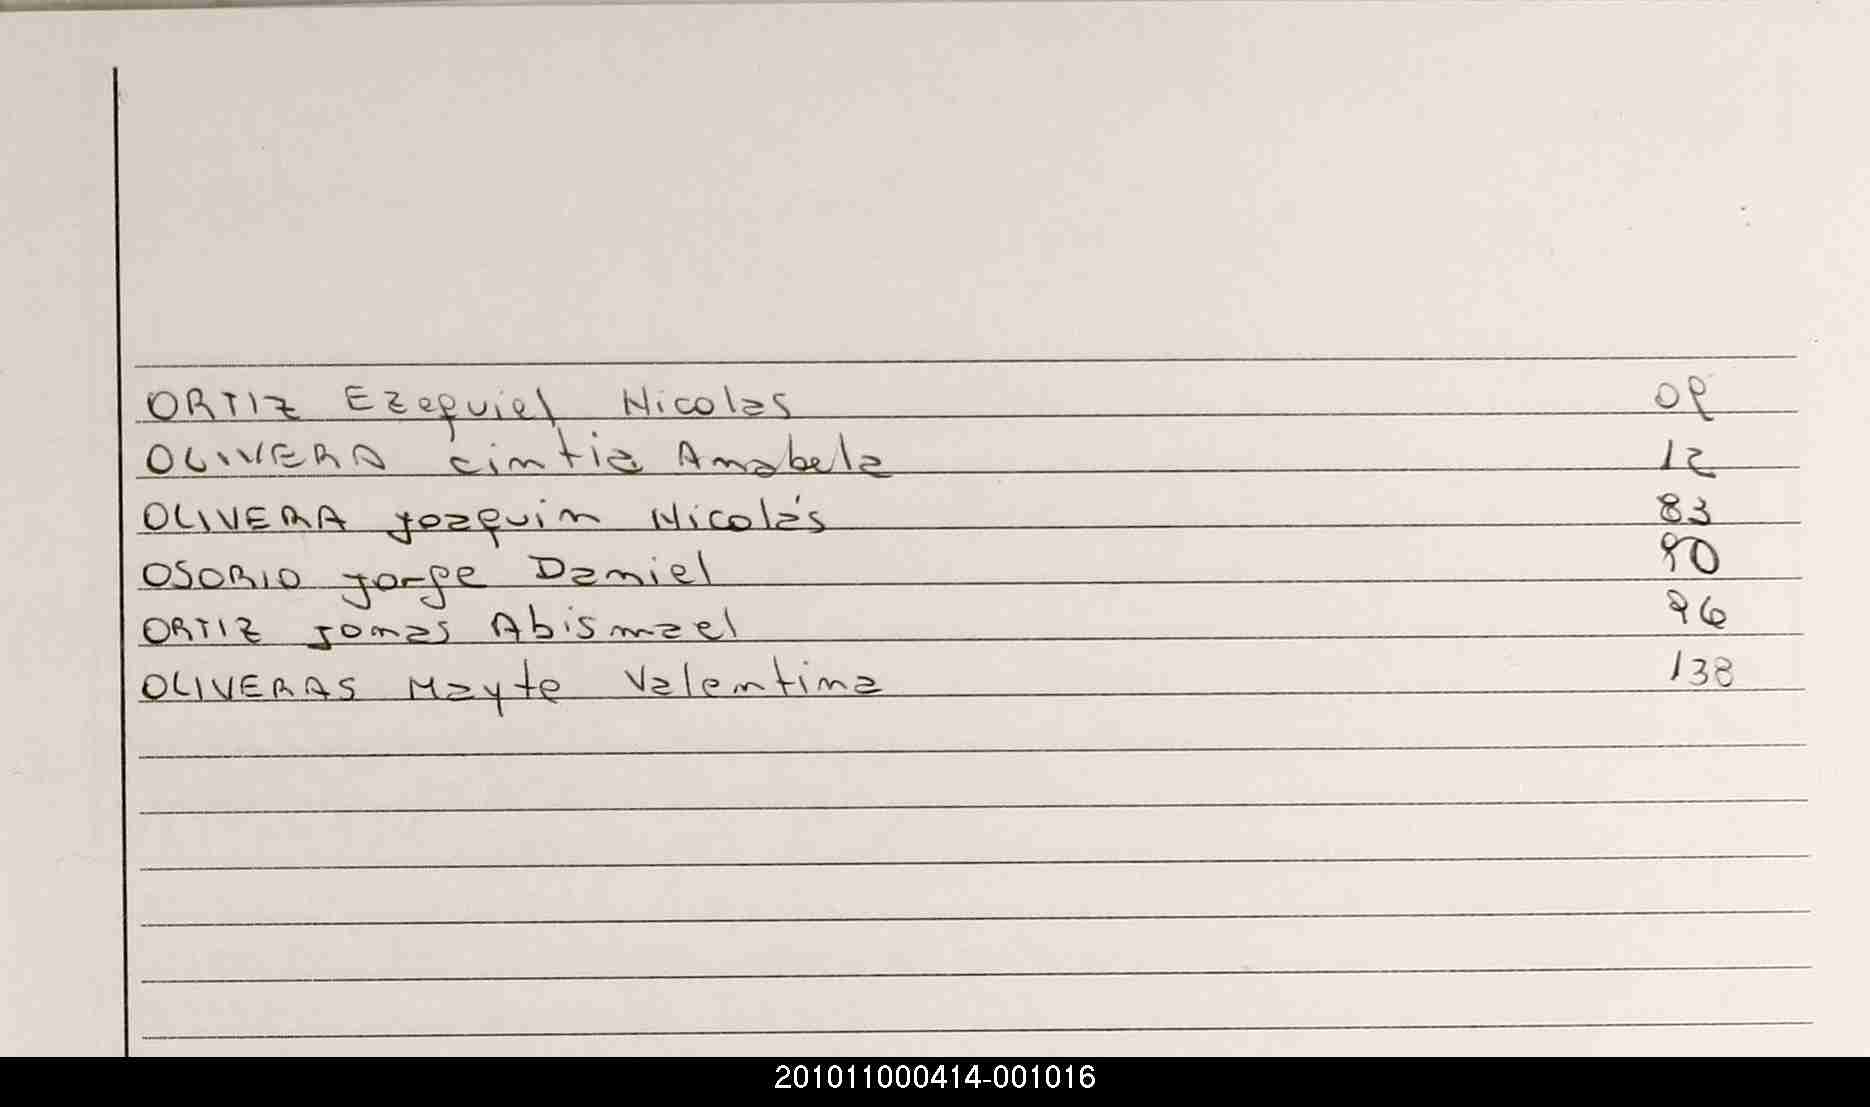 ORTIZ Ezequiel Nicolas 09
OLIVERA Cintia Anabela 12
OLIVERA Joaquin Nicolás 83
OSORIO Jorge Daniel 90
ORTIZ Jonas Abismael 96
OLIVERAS Mayte Valentina 138
201011000414-001016